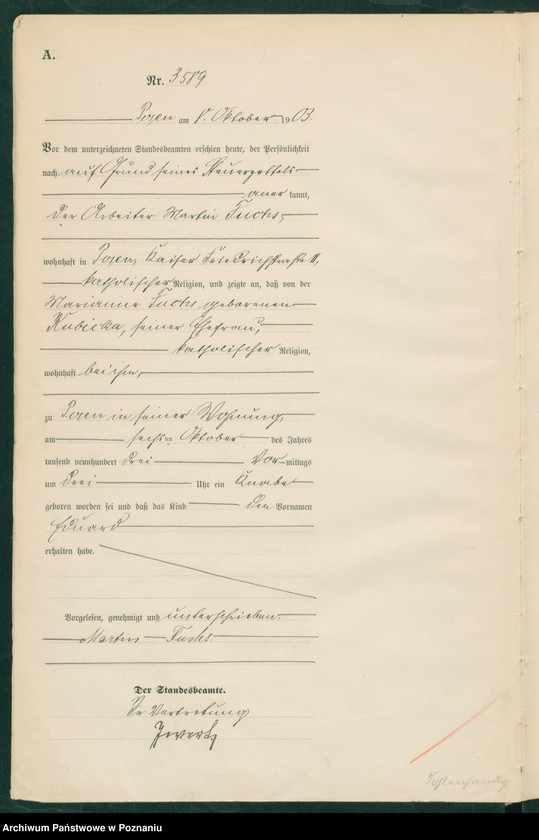 A.
Nr. 3589
Posen am 8. Oktober 1903.
Vor dem unterzeichneten Standesbeamten erschien heute, der Persönlichkeit
nach auf Grund seines Steuerzettels
aner kannt,
der Arbeiter Martin Fuchs,
wohnhaft in Posen, Kaiser Friedrichstraße
katholischer Religion, und zeigte an, daß von der
Marianne Fuchs geborenen
Kubicka, seiner Ehefrau,
katholischer Religion,
wohnhaft bei ihm,
zu Posen in seiner Wohnung,
am sechsten Oktober des Jahres
tausend neunhundert drei Vor mittags
um drei Uhr ein Knabe
geboren worden sei und daß das Kind den Vornamen
Eduard
erhalten habe.
Vorgelesen, genehmigt und unterschrieben.
Martin Fuchs
Der Standesbeamte.
In Vertretung
Archiwum Państwowe w Poznaniu